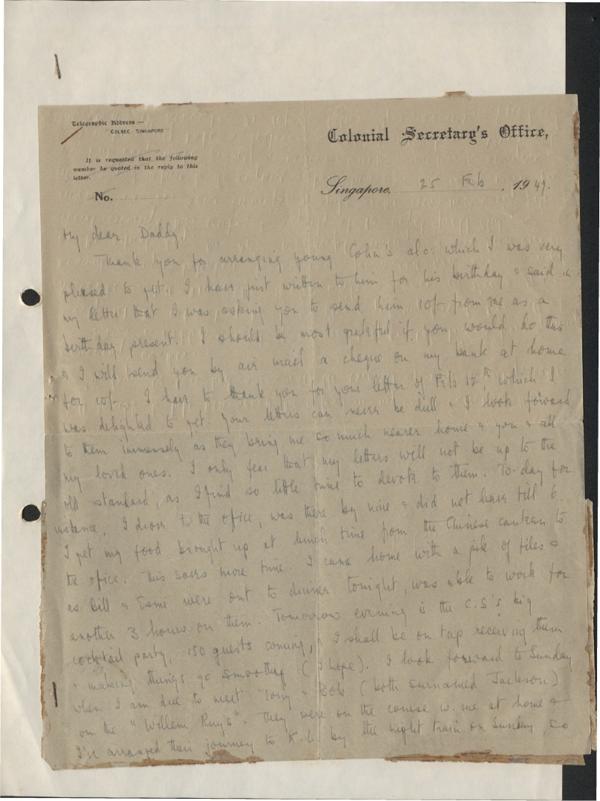 Telegraphic Address:—
COLSEC SINGAPORE
It is requested that the following
number be quoted in the reply to this
letter.
No.
Colonial Secretary's Office,
Singapore, 25 Feb, 1949.
My dear Daddy
Thank you for arranging young Colin's a/c. which I was very
pleased to get. I have just written to him for his birthday & said in
my letter that I was asking you to send him 10/- from me as a
birthday present. I should be most grateful if you would do this
& I will send you by air mail a cheque on my bank at home
for 10/-. I have to thank you for your letter of Feb 12th which I
was delighted to get. Your letters can never be dull & I look forward
to them immensely as they bring me so much nearer home & you & all
my loved ones. I only fear that my letters will not be up to the
old standard, as I find so little time to devote to them. To-day for
instance, I drove to the office, was there by nine & did not leave till 6.
I get my food brought up at lunch time from the Chinese canteen to
the office. This saves more time. I came home with a pile of files &
as Bill & were out to dinner tonight, was able to work for
another 3 hours on them. Tomorrow evening is the C.S's big
cocktail party, 150 guests coming, & I shall be on tap receiving them
& making things go smoothly (I hope). I look forward to Sunday
when I am due to meet "Tony" & Bob (both surnamed Jackson)
on the "Willem Ruys". They were on the course w. me at home &
I've arranged their journey to K.L. by the night train on Sunday, so